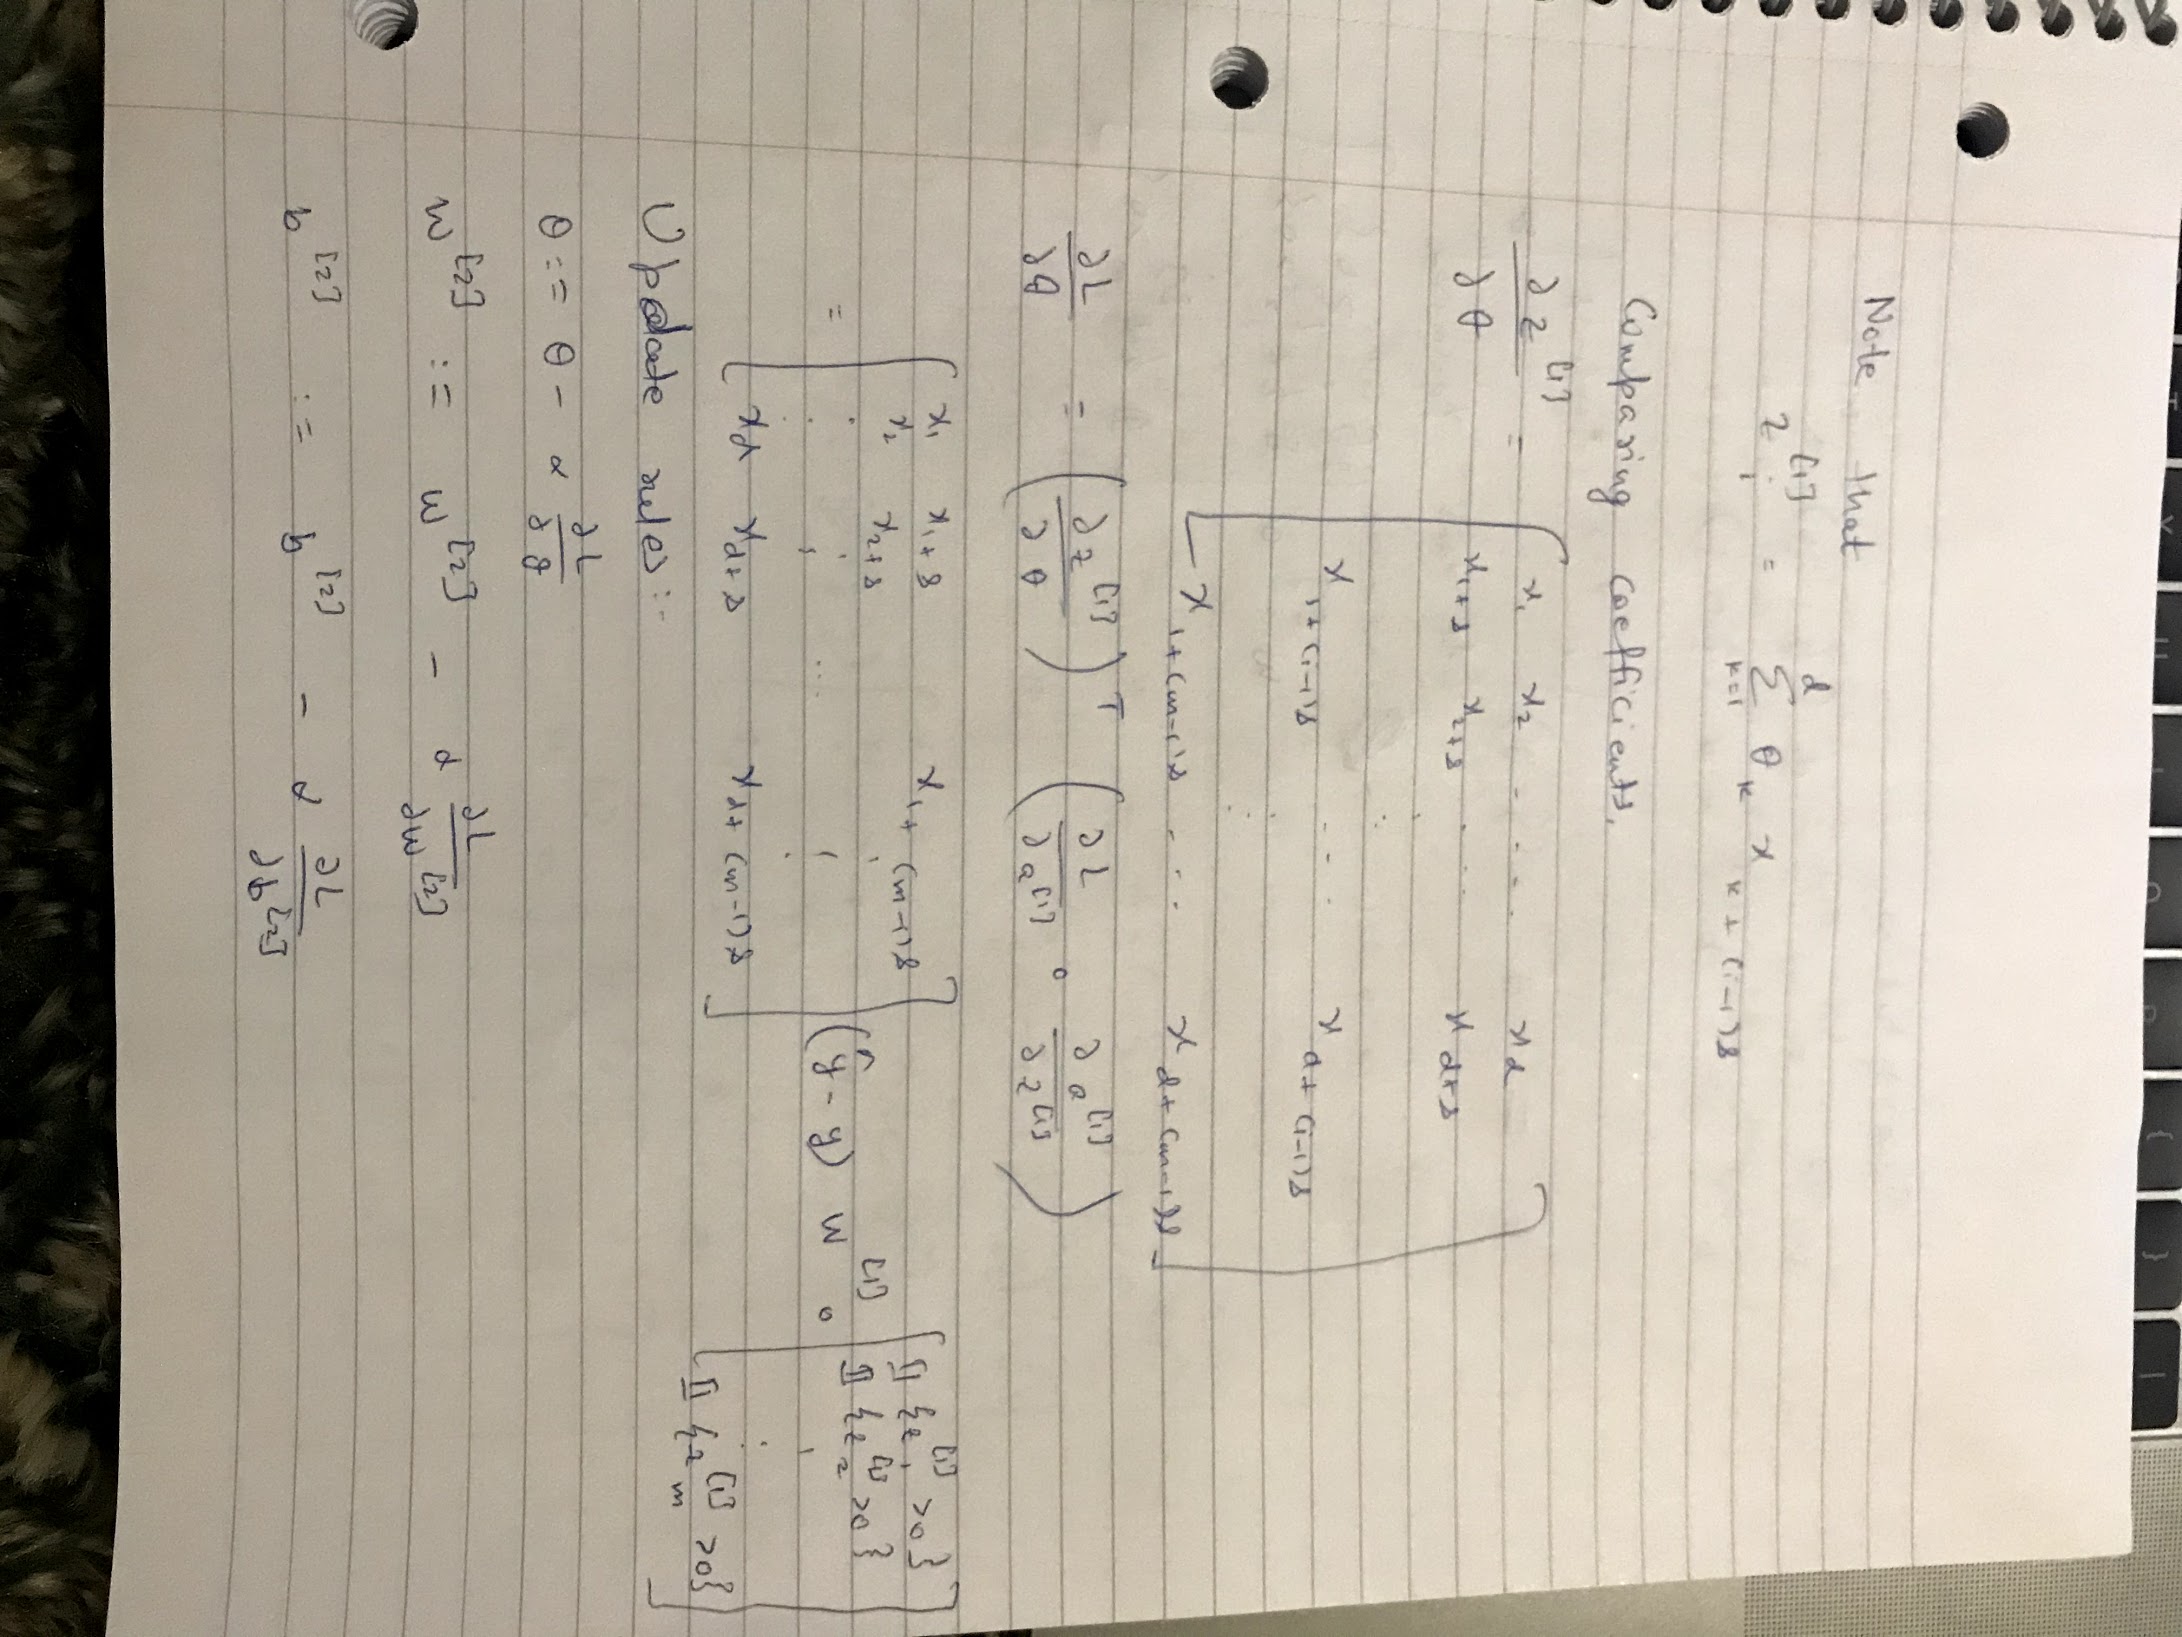 Note that
z_i^[1] = Σ_{k=1}^{d} θ_k x_{k+(i-1)s}
Comparing coefficients,
∂z^[1]/∂θ = [ x_1 x_2 .... x_d
x_{1+s} x_{2+s} .... x_{d+s}
⋮
x_{1+(i-1)s} ... x_{d+(i-1)s}
⋮
x_{1+(m-1)s} .... x_{d+(m-1)s} ]
∂L/∂θ = (∂z^[1]/∂θ)^T (∂L/∂a^[1] ∘ ∂a^[1]/∂z^[1])
= [ x_1 x_{1+s} x_{1+(m-1)s}
x_2 x_{2+s}
⋮ ⋮ ... ⋮
x_d x_{d+s} x_{d+(m-1)s} ] (ŷ - y) W^[1] ∘ [ 𝟙{z_1^[1] >0}
𝟙{z_2^[1] >0}
⋮
𝟙{z_m^[1] >0} ]
Update rules:-
θ := θ - α ∂L/∂θ
W^[2] := W^[2] - α ∂L/∂W^[2]
b^[2] := b^[2] - α ∂L/∂b^[2]